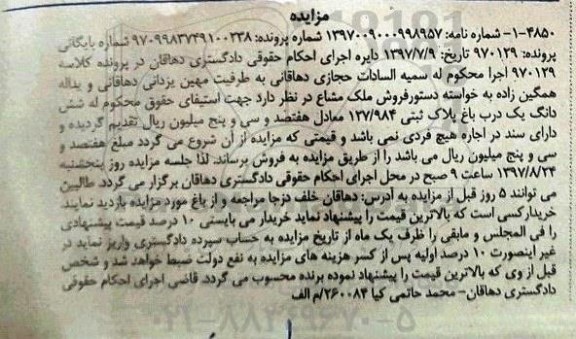 مزایده
۴۸۵۰-۱- شماره نامه: ۱۳۹۷۰۰۹۰۰۰۹۹۸۹۵۷ شماره پرونده: ۹۷۰۹۹۸۳۷۴۹۱۰۰۲۳۸ شماره بایگانی
پرونده: ۹۷۰۱۲۹ تاریخ: ۱۳۹۷/۷/۹ دایره اجرای احکام حقوقی دادگستری دهاقان در پرونده کلاسه
۹۷۰۱۲۹ اجرا محکوم له سمیه السادات حجازی دهاقانی به طرفیت مهین یزدانی دهاقانی و یداله
همگین زاده به خواسته دستورفروش ملک مشاع در نظر دارد جهت استیفای حقوق محکوم له شش
دانگ یک درب باغ پلاک ثبتی ۱۲۷/۹۸۴ معادل هفتصد و سی و پنج میلیون ریال تقدیم گردیده و
دارای سند در اجاره هیچ فردی نمی باشد و قیمتی که مزایده از آن شروع می گردد مبلغ هفتصد و
سی و پنج میلیون ریال می باشد را از طریق مزایده به فروش برساند. لذا جلسه مزایده روز پنجشنبه
۱۳۹۷/۸/۲۴ ساعت ۹ صبح در محل اجرای احکام حقوقی دادگستری دهاقان برگزار می گردد. طالبین
می توانند ۵ روز قبل از مزایده به آدرس: دهاقان خلف دزجا مراجعه و از باغ مورد مزایده بازدید نمایند.
خریدارکسی است که بالاترین قیمت را پیشنهاد نماید خریدار می بایستی ۱۰ درصد قیمت پیشنهادی
را فی المجلس و مابقی را ظرف یک ماه از تاریخ مزایده به حساب سپرده دادگستری واریز نماید در
غیر اینصورت ۱۰ درصد اولیه پس از کسر هزینه های مزایده به نفع دولت ضبط خواهد شد و شخص
قبل از وی که بالاترین قیمت را پیشنهاد نموده برنده محسوب می گردد. قاضی اجرای احکام حقوقی
دادگستری دهاقان- محمد حاتمی کیا ۲۶۰۰۸۴/م الف
۰۲۱-۸۸۳۴۹۶۷۰-۵